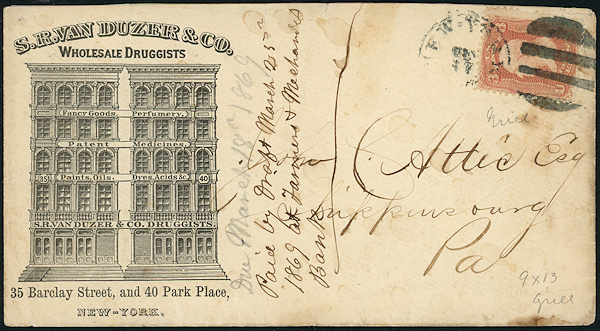 S.R.VAN DUZER & CO.
WHOLESALE DRUGGISTS
Fancy Goods. Perfumery.
Patent Medicines.
35 Paints, Oils. Dyes, Acids &c. 40
S.R.VAN DUZER & CO. DRUGGISTS.
35 Barclay Street, and 40 Park Place,
NEW-YORK.
Due March 18th 1869
Paid by Draft March 25th
1869 at Farmers & Mechanics
Bank
NEW-YORK
Attic Esq
Shippensburg
Pa
Grill
9x13
Grill